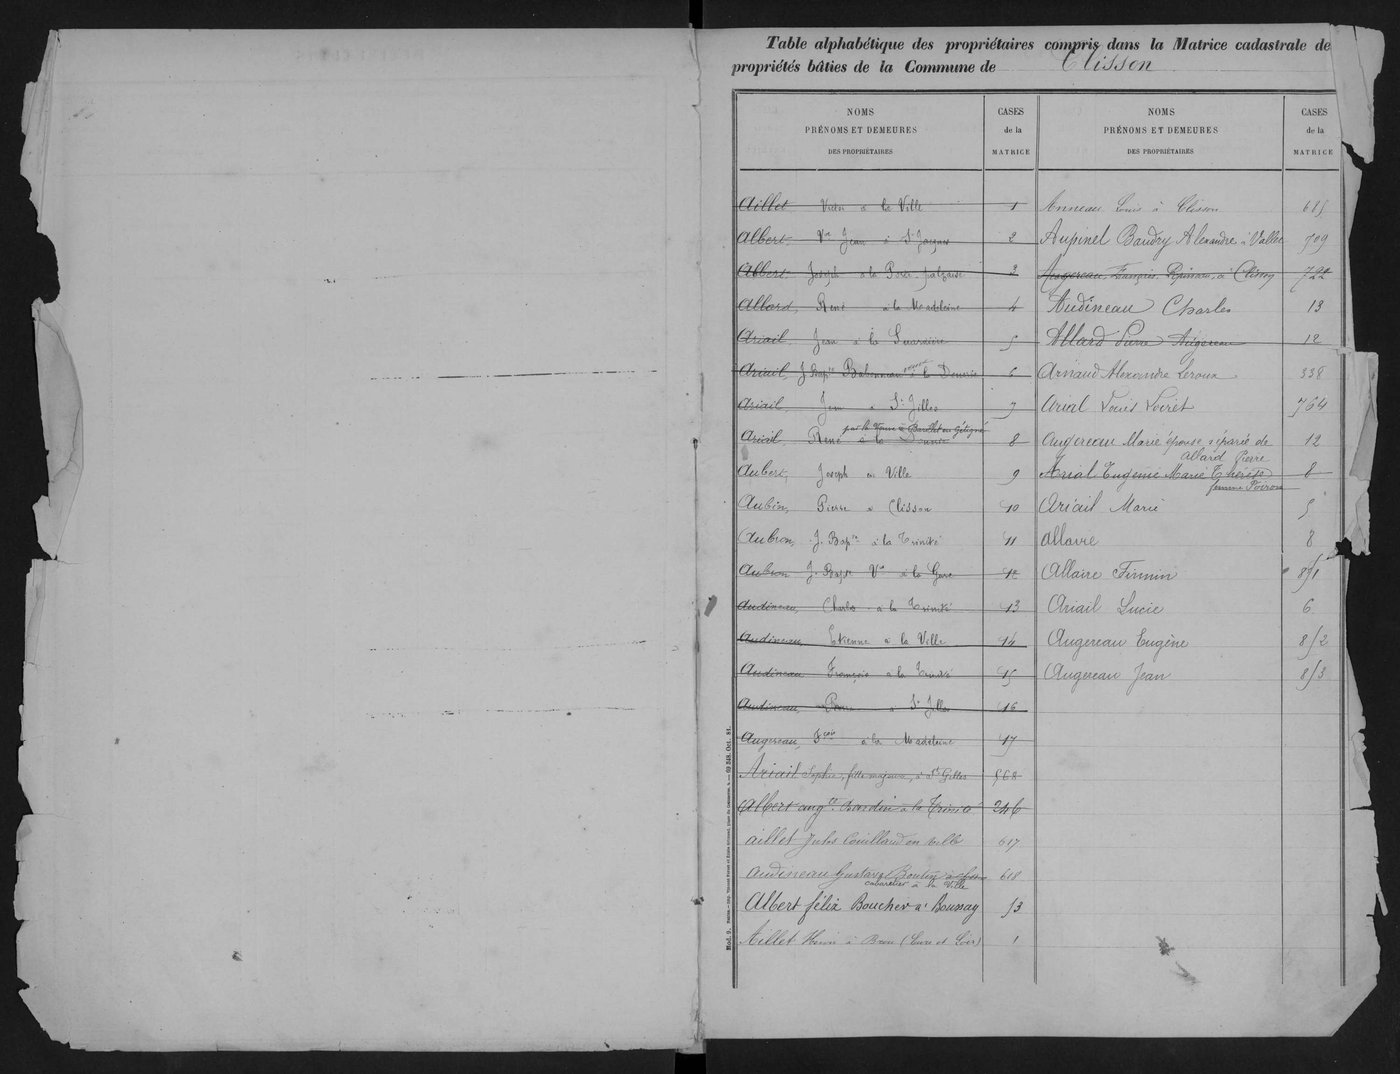 Table alphabétique des propriétaires compris dans la Matrice cadastrale de
propriétés bâties de la Commune de Clisson
NOMS
PRÉNOMS ET DEMEURES
DES PROPRIÉTAIRES
CASES
de la
MATRICE
Aillet à la Ville 1
Albert Vve Jean à St Jacques 2
Albert Joseph à la Porte palzaise 3
Allard, René à la Madeleine 4
Ariail Jean à la 5
Ariail, J Bapte Babonneau à la 6
Ariail, Jean à St Gilles 7
par la Veuve à Gétigné
Ariail René à la 8
Aubert, Joseph en Ville 9
Aubin, Pierre à Clisson 10
Aubron, J. Bapte à la Trinité 11
Aubron J. Bapte Vve à la Gare 12
Audineau, Charles à la Trinité 13
Audineau, Etienne à la Ville 14
Audineau François à la Trinité 15
Audineau, Pierre à St Gilles 16
Augereau, Fçois à la Madeleine 17
Ariail Sophie, fille majeure, à St Gilles 568
Albert aug. Bardin à la Trinité 246
aillet Jules Couillaud en ville 617
Audineau Gustave Boutin 618
cabaretier à la Ville
Albert félix Boucher à Boussay 53
Aillet Henri à Brou (Eure et Loir) 1
NOMS
PRÉNOMS ET DEMEURES
DES PROPRIÉTAIRES
CASES
de la
MATRICE
Anneau Louis à Clisson 615
Aupinel Baudry Alexandre à Vallet 709
Augereau François à Clisson 722
Audineau Charles 13
Allard Pierre Augereau 12
Arnaud Alexandre Leroux 338
Arial Louis Loiret 764
Augereau Marie épouse séparée de 12
Allard Pierre
Arial Eugénie Marie Thérèse 8
femme Poiron
Ariail Marie 5
allaire 8
Allaire Firmin 851
Ariail Lucie 6
Augereau Eugène 852
Augereau Jean 853